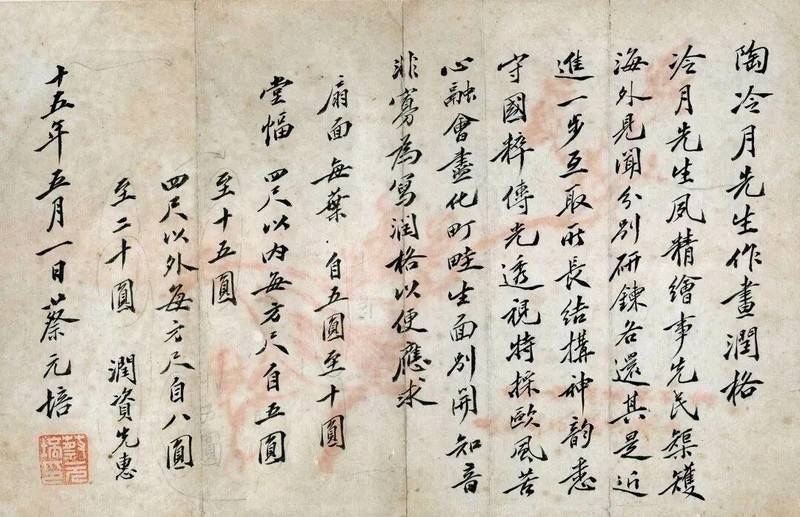 陶冷月先生作畫潤格
冷月先生夙精繪事先民榘矱
海外見聞分別研鍊各還其是近
進一步互取所長結搆神韵悉
守國粹傳光透視特採歐風苦
心融會盡化町畦生面別開知音
非寡為寫潤格以便應求
扇面 每葉 自五圓至十圓
堂幅 四尺以內每方尺自五圓
至十五圓
四尺以外每方尺自八圓
至二十圓 潤資先惠
十五年五月一日 蔡元培
蔡元培印